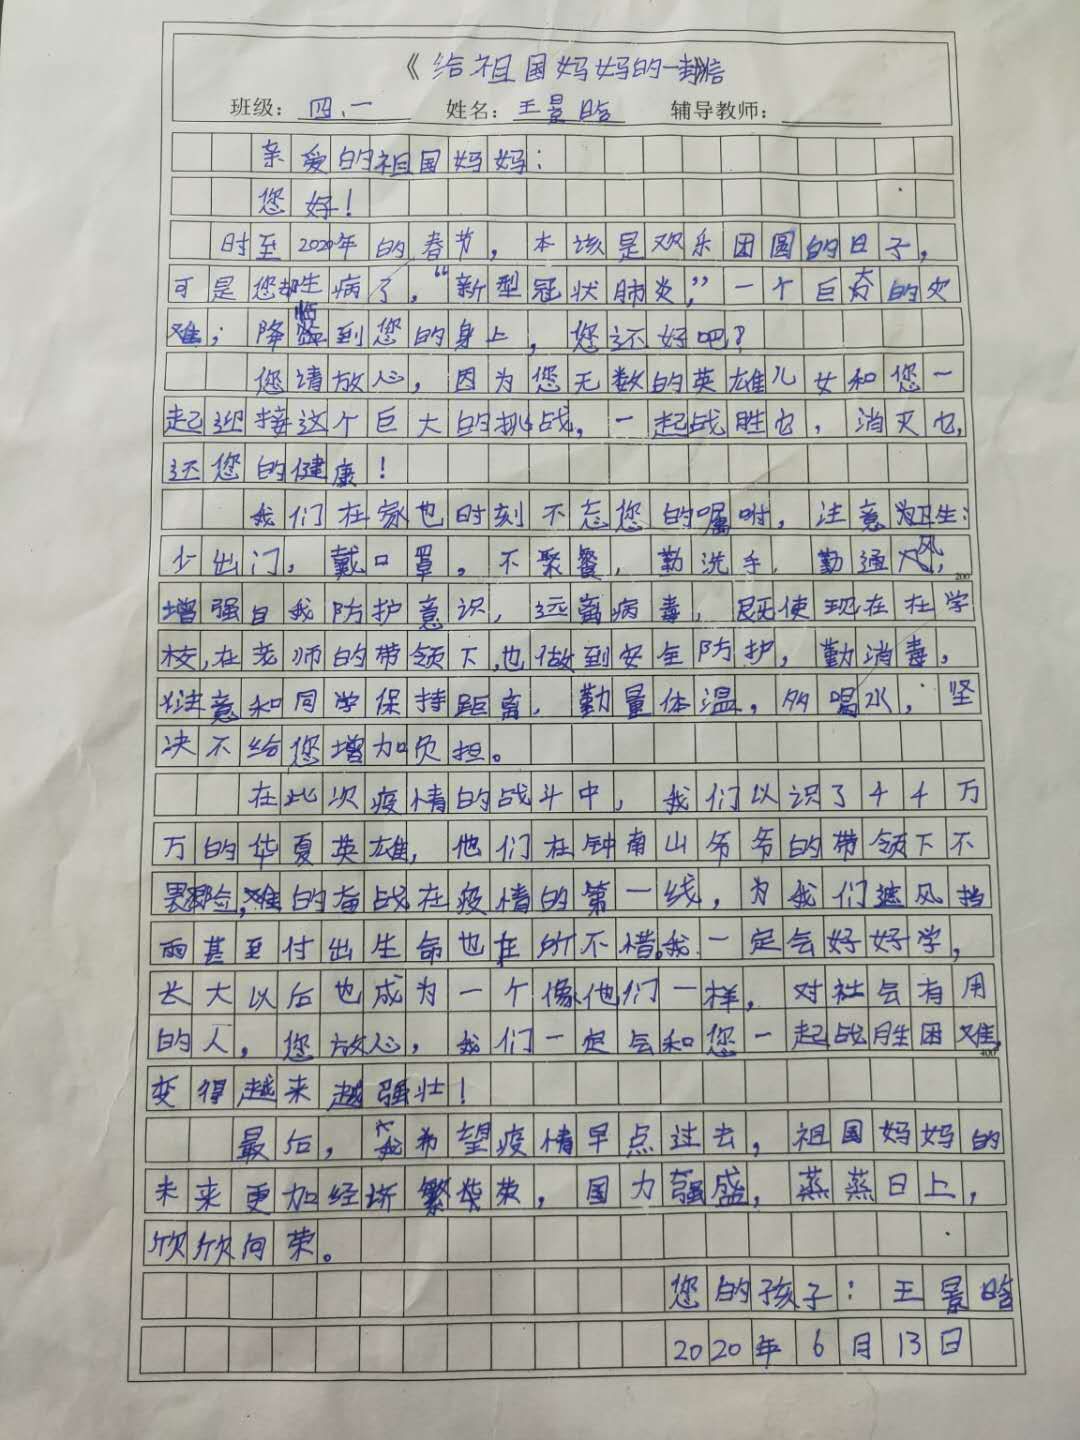 《给祖国妈妈的一封信
班级：四、一 姓名：王景晗 辅导教师：
亲爱的祖国妈妈：
您好！
时至2020年的春节，本该是欢乐团圆的日子，
可是您却生病了，“新型冠状肺炎，”一个巨大的灾
难；降临到您的身上，您还好吧？
您请放心，因为您无数的英雄儿女和您一
起迎接这个巨大的挑战，一起战胜它，消灭它，
还您的健康！
我们在家也时刻不忘您的嘱咐，注意卫生：
少出门，戴口罩。不聚餐，勤洗手，勤通风，
200
增强自我防护意识，远离病毒，既使现在在学
校，在老师的带领下，也做到安全防护，勤消毒，
注意和同学保持距离，勤量体温，多喝水；坚
决不给您增加负担。
在此次疫情的战斗中，我们以识了千千万
万的华夏英雄，他们在钟南山爷爷的带领下不
畏艰难的奋战在疫情的第一线，为我们遮风挡
雨甚至付出生命也在所不惜。我一定会好好学，
长大以后也成为一个像他们一样，对社会有用
的人，您放心，我们一定会和您一起战胜困难，
400
变得越来越强壮！
最后，我希望疫情早点过去，祖国妈妈的
未来更加经济繁荣，国力强盛，蒸蒸日上，
欣欣向荣。
您的孩子：王景晗
2020年6月13日